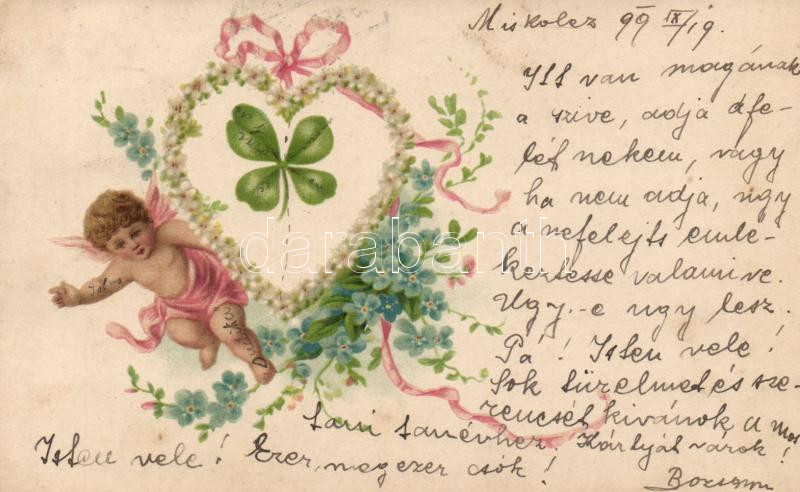 Miskolcz 99 IX/19.
Itt van magának
a szive, adja áfe-
lét nekem, vagy
ha nem adja, úgy
a nefelejts emlé-
keztesse valamire.
Ugy-e ugy lesz.
Pá! Isten vele!
Sok türelmet és sze-
rencsét kivánok a mos
tani tanévhez. Kártyát várok!
Isten vele! Ezer, meg ezer csók!
darabanth